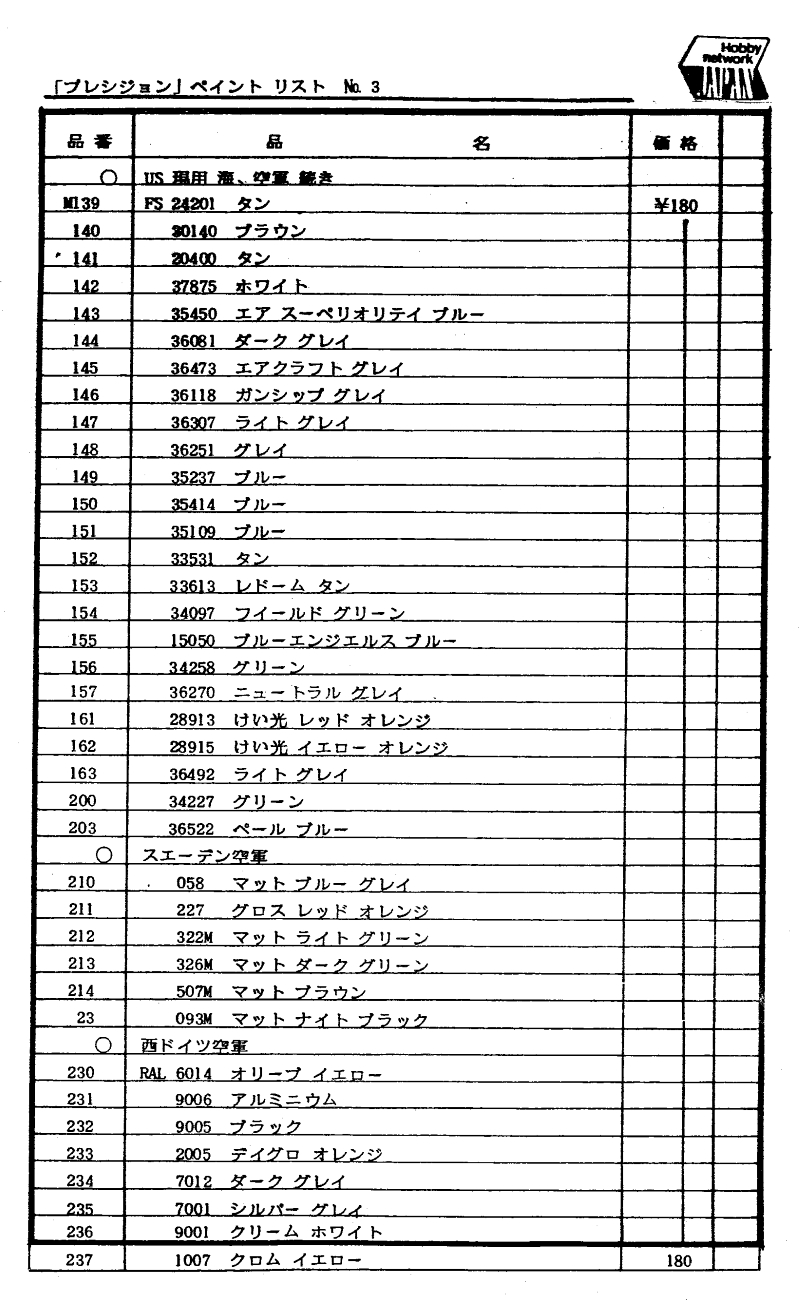 Hobby
network
JAPAN
「プレシジョン」ペイント リスト No. 3
品番 品名 価格
○ US 現用 海、空軍 続き
M139 FS 24201 タン ¥180
140 30140 ブラウン
141 20400 タン
142 37875 ホワイト
143 35450 エア スーペリオリテイ ブルー
144 36081 ダーク グレイ
145 36473 エアクラフト グレイ
146 36118 ガンシップ グレイ
147 36307 ライト グレイ
148 36251 グレイ
149 35237 ブルー
150 35414 ブルー
151 35109 ブルー
152 33531 タン
153 33613 レドーム タン
154 34097 フイールド グリーン
155 15050 ブルーエンジエルス ブルー
156 34258 グリーン
157 36270 ニュートラル グレイ
161 28913 けい光 レッド オレンジ
162 28915 けい光 イエロー オレンジ
163 36492 ライト グレイ
200 34227 グリーン
203 36522 ペール ブルー
○ スエーデン空軍
210 058 マット ブルー グレイ
211 227 グロス レッド オレンジ
212 322M マット ライト グリーン
213 326M マット ダーク グリーン
214 507M マット ブラウン
23 093M マット ナイト ブラック
○ 西ドイツ空軍
230 RAL 6014 オリーブ イエロー
231 9006 アルミニウム
232 9005 ブラック
233 2005 デイグロ オレンジ
234 7012 ダーク グレイ
235 7001 シルバー グレイ
236 9001 クリーム ホワイト
237 1007 クロム イエロー 180